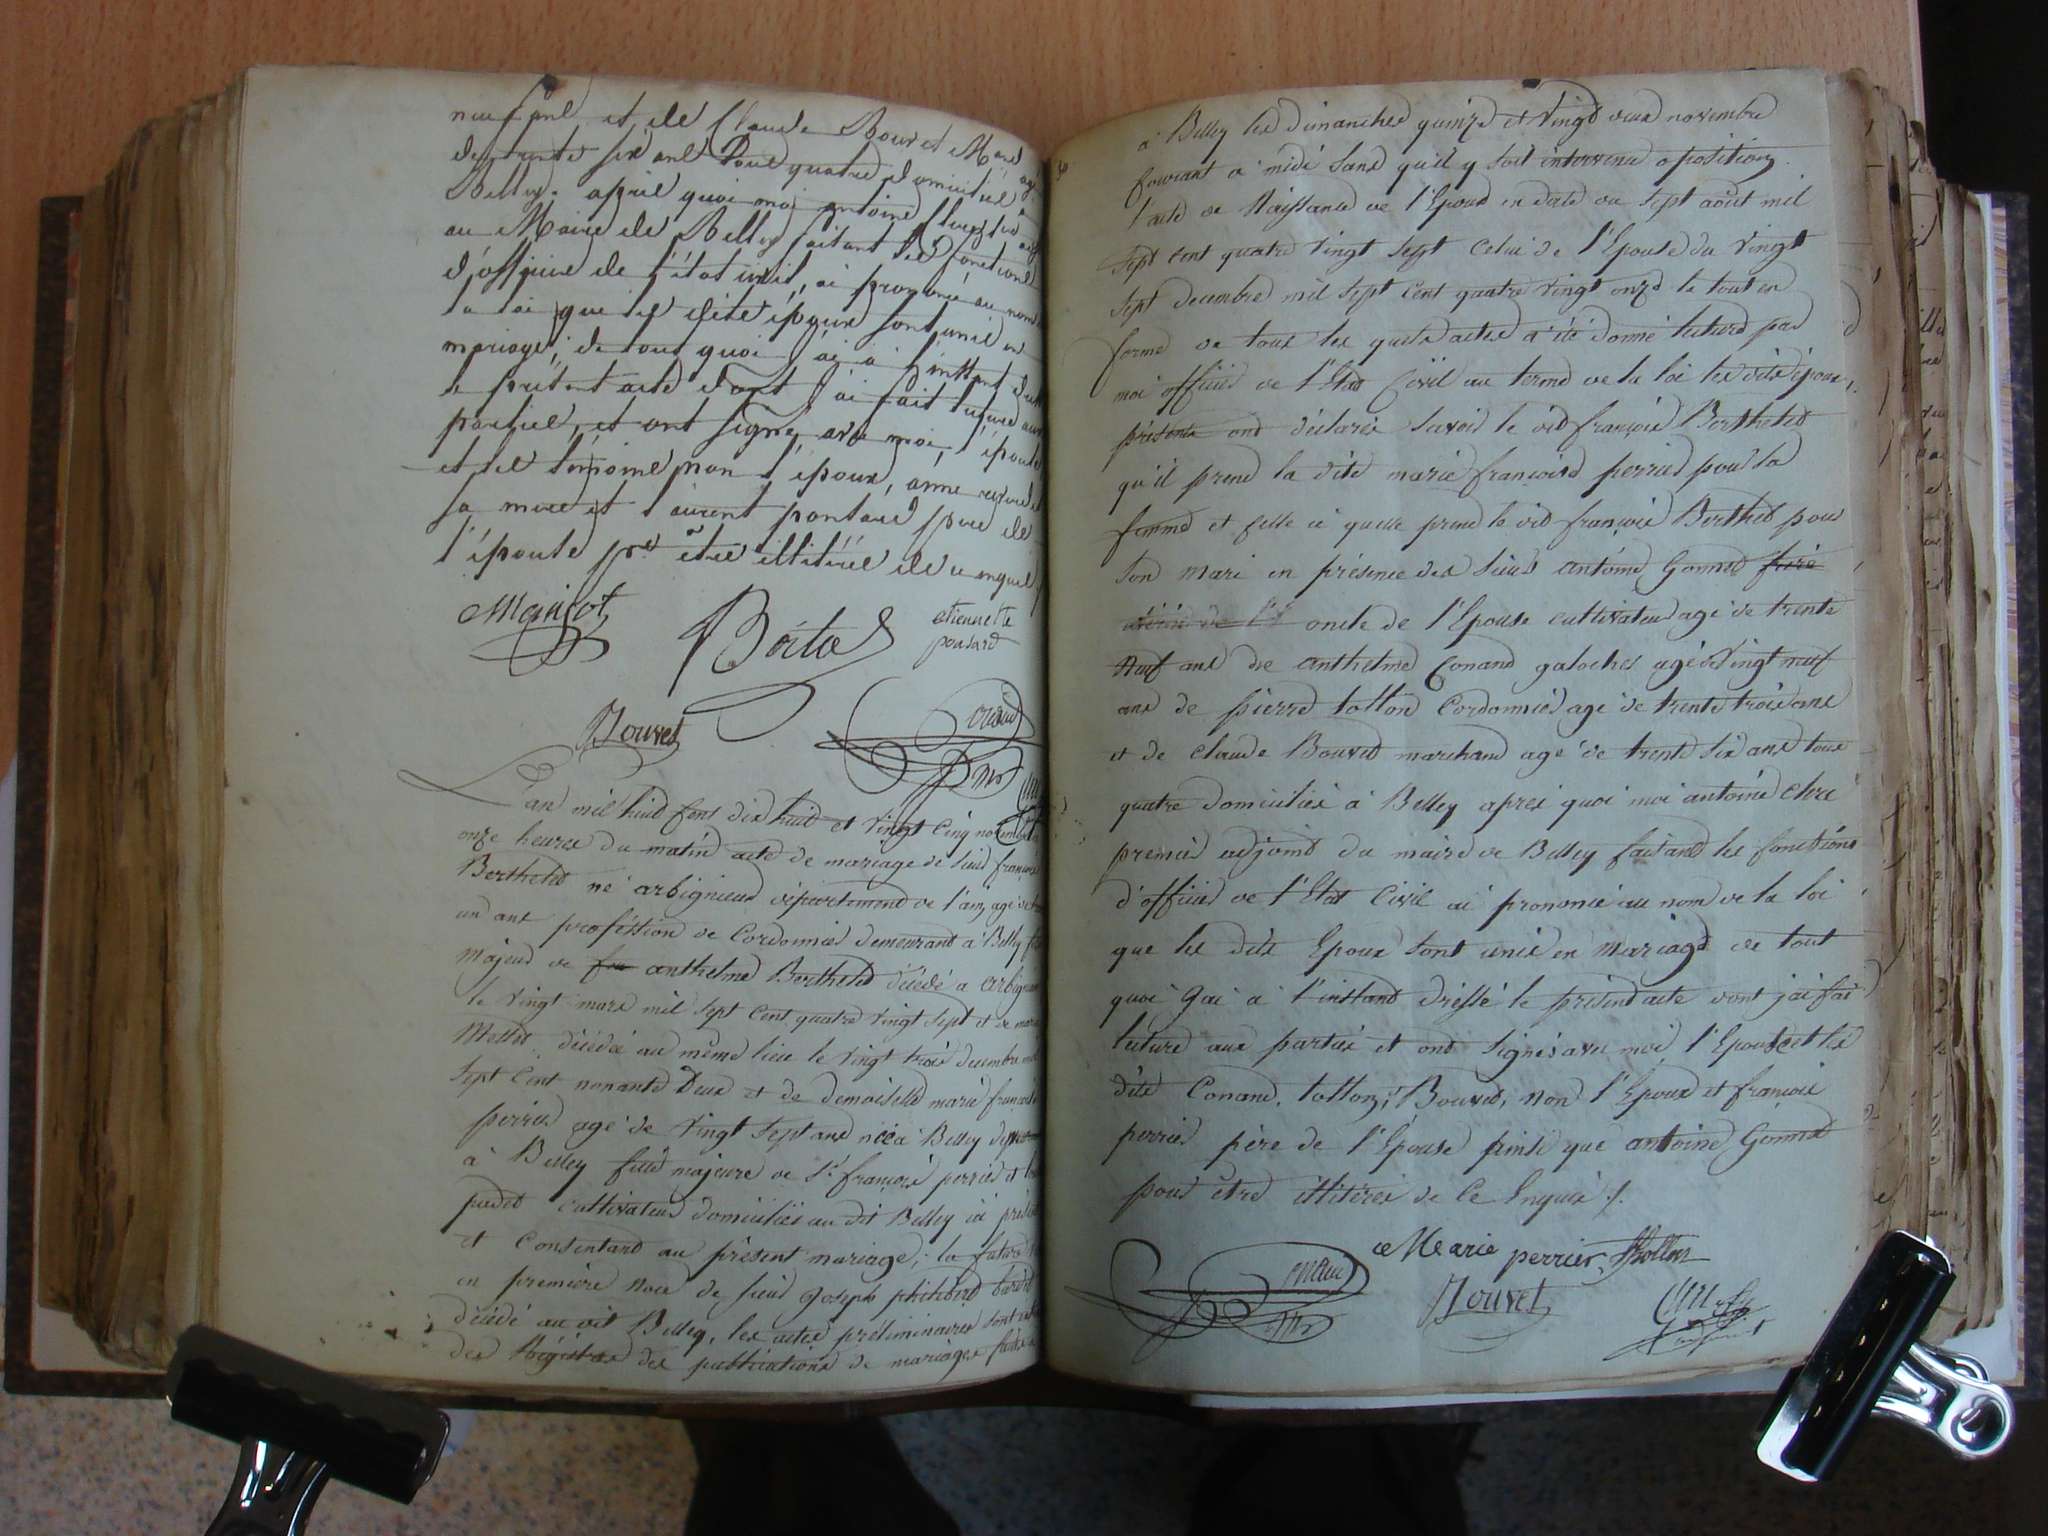 neuf ans et de Claude Bouvet Mard
de trente six ans Tous quatre domiciliés à
Belley. après quoi moi antoine
au Maire de Belley faisant les fonctions
d'officier de l'état civil, ai prononcé au nom
la loi que les dits époux sont unis en
mariage; de tout quoi j'ai à l'instant
le présent acte dont j'ai fait lecture aux
parties, et ont signé avec moi, l'épouse
et les témoins non l'époux, anne
sa mere et laurent pontard pere de
l'épouse pr être illitérés de ce enquis
Bouvet
etiennette
ponsard
L'an mil huit cent dix huit et vingt cinq novembre
onze heures du matin acte de mariage de sieur françois
Berthelet né arbignieux département de l'ain agé de
un ans profession de Cordonnier demeurant à Belley
Majeur de feu anthelme Berthelet décédé a arbignieux
le vingt mars mil sept cent quatre vingt sept et de marie
Mettes décédée au même lieu le vingt trois decembre mil
sept cent nonante deux et de demoiselle marie françoise
perrier agé de vingt sept ans née à Belley
à Belley fille majeure de Sr françois perrier et
cultivateurs domiciliés au dit Belley ici
et Consentant au présent mariage; la future
en première noce de sieur joseph philibert
décédé au dit Belley, les actes préliminaires sont
des Régistres des publications de mariages faites
à Belley les dimanches quinze et vingt deux novembre
Courant a midi sans qu'il y soit intervenu oposition.
l'acte de Naissance de l'Epoux en date du sept août mil
sept cent quatre vingt sept Celui de l'Epouse du vingt
sept decembre mil sept cent quatre vingt onze le tout en
forme de tous les quels actes a été donné lecture par
moi officier de l'Etat Civil au terme de la loi les dits époux,
présents ont déclarés savoir le dit françois Berthelet
qu'il prend la dite marie françoise perrier pour sa
femme et elle a quelle prend le dit françois Berthet pour
son mari en présence des sieurs antoine Gonnet frère
oncle de l'Epouse cultivateur agé de trente
Neuf ans de anthelme Conand galocher agé de vingt neuf
ans de pierre tollon Cordonnier agé de trente trois ans
et de Claude Bouvet marchand agé de trente six ans tous
quatre domiciliés à Belley apres quoi moi antoine
premier adjoint du maire de Belley faisant les fonctions
d'officier de l'Etat Civil ai prononcé au nom de la loi
que les dits Epoux sont unis en mariage de tout
quoi jai à l'instant dréssé le présent acte dont j'ai fait
lecture aux parties et ont signés avec moi l'Epouse et les
dits Conand, tollon, Bouvet, non l'Epoux et françois
perrier père de l'Epouse ainsi que antoine Gonnet
pour être illitérés de ce Enquis ./.
Marie perrier. thollon
Bouvet